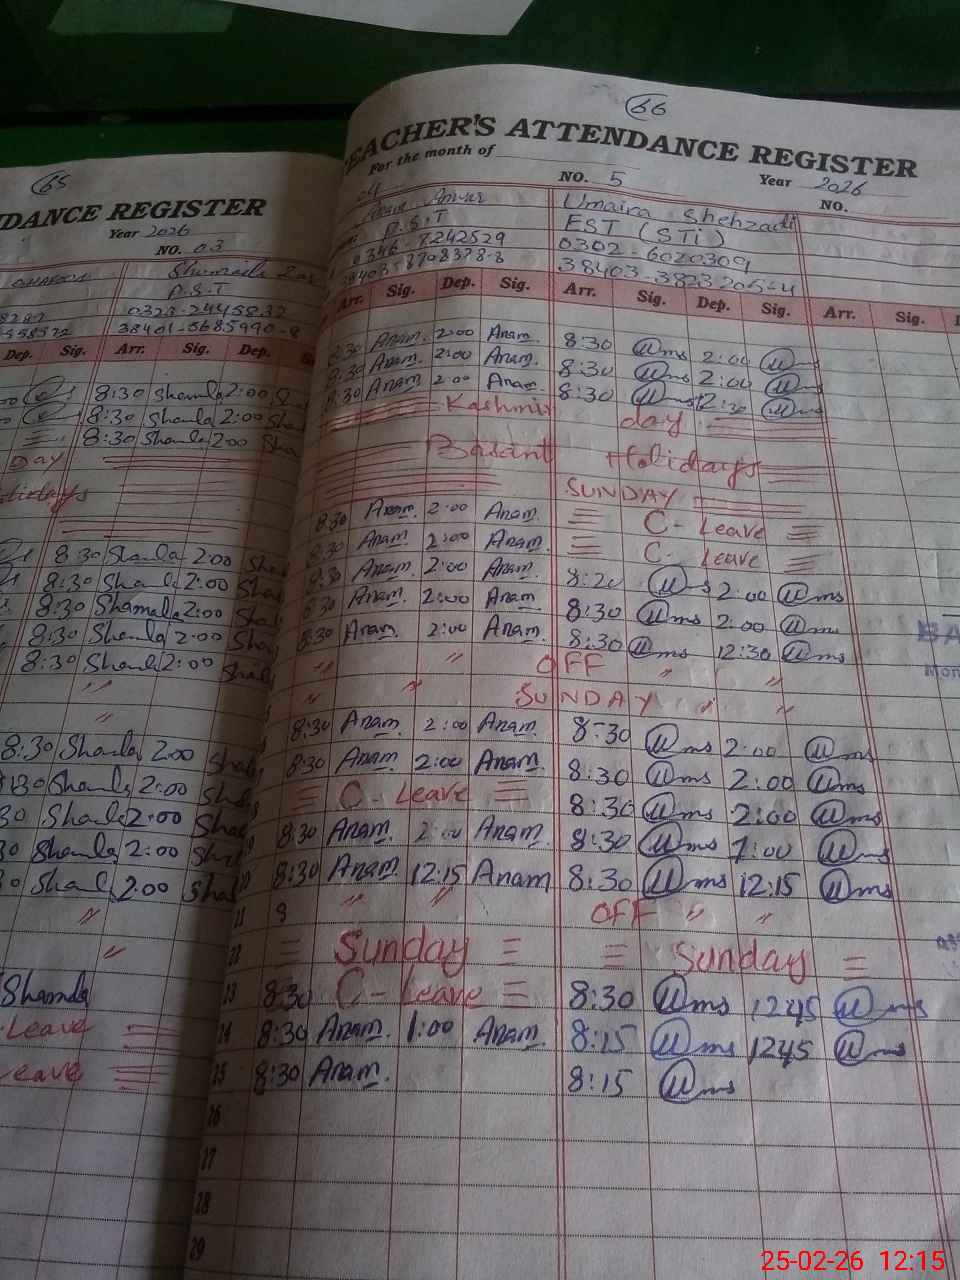 65
DANCE REGISTER
Year 2026
NO. 03
P.S.T
0323-2445832
38401-5685990-8
Dep. Sig. Arr. Sig. Dep.
8:30 Shamla 2:00
8:30 Shamla 2:00 Sha
8:30 Shamla 2:00 Sha
Day
8:30 Shamla 2:00 Sha
8:30 Shamla 2:00 Sha
8:30 Shamala 2:00 Sha
8:30 Shamla 2:00 Sha
8:30 Shamla 2:00
〃
〃
8:30 Shamla 2:00
8:30 Shamla 2:00
30 Shamla 2:00
Shamla 2:00
Shaml 2:00
〃
〃
Shamla
Leave
eave
66
EACHER'S ATTENDANCE REGISTER
For the month of
NO. 5 Year 2026
NO.
04
Anam Anwar Umaira Shehzadi
P.S.T EST (STI)
0346-7242529 0302-6020309
38403-8708378-8 38403-3823205-4
Arr. Sig. Dep. Sig. Arr. Sig. Dep. Sig. Arr. Sig.
8:30 Anam 2:00 Anam. 8:30 Ums 2:00 Ums
8:30 Anam 2:00 Anam. 8:30 Ums 2:00 Ums
8:30 Anam 2:00 Anam. 8:30 Ums 12:30 Ums
Kashmir day
Basant Holidays
SUNDAY
8:30 Anam. 2:00 Anam. C- Leave
8:30 Anam. 2:00 Anam. C- Leave
8:30 Anam. 2:00 Anam. 8:20 Ums 2:00 Ums
8:30 Anam. 2:00 Anam. 8:30 Ums 2:00 Ums
8:30 Anam. 2:00 Anam. 8:30 Ums 12:30 Ums
〃 〃 OFF 〃 〃
〃 〃 SUNDAY 〃 〃
8:30 Anam. 2:00 Anam. 8:30 Ums 2:00 Ums
8:30 Anam. 2:00 Anam. 8:30 Ums 2:00 Ums
C- Leave 8:30 Ums 2:00 Ums
8:30 Anam. 2:00 Anam. 8:30 Ums 1:00 Ums
8:30 Anam. 12:15 Anam 8:30 Ums 12:15 Ums
21 8 〃 〃 OFF 〃 〃
22 = Sunday = = Sunday =
23 8:30 C- Leave = 8:30 Ums 1245 Ums
24 8:30 Anam. 1:00 Anam. 8:15 Ums 1245 Ums
25 8:30 Anam. 8:15 Ums
26
27
28
29
25-02-26 12:15